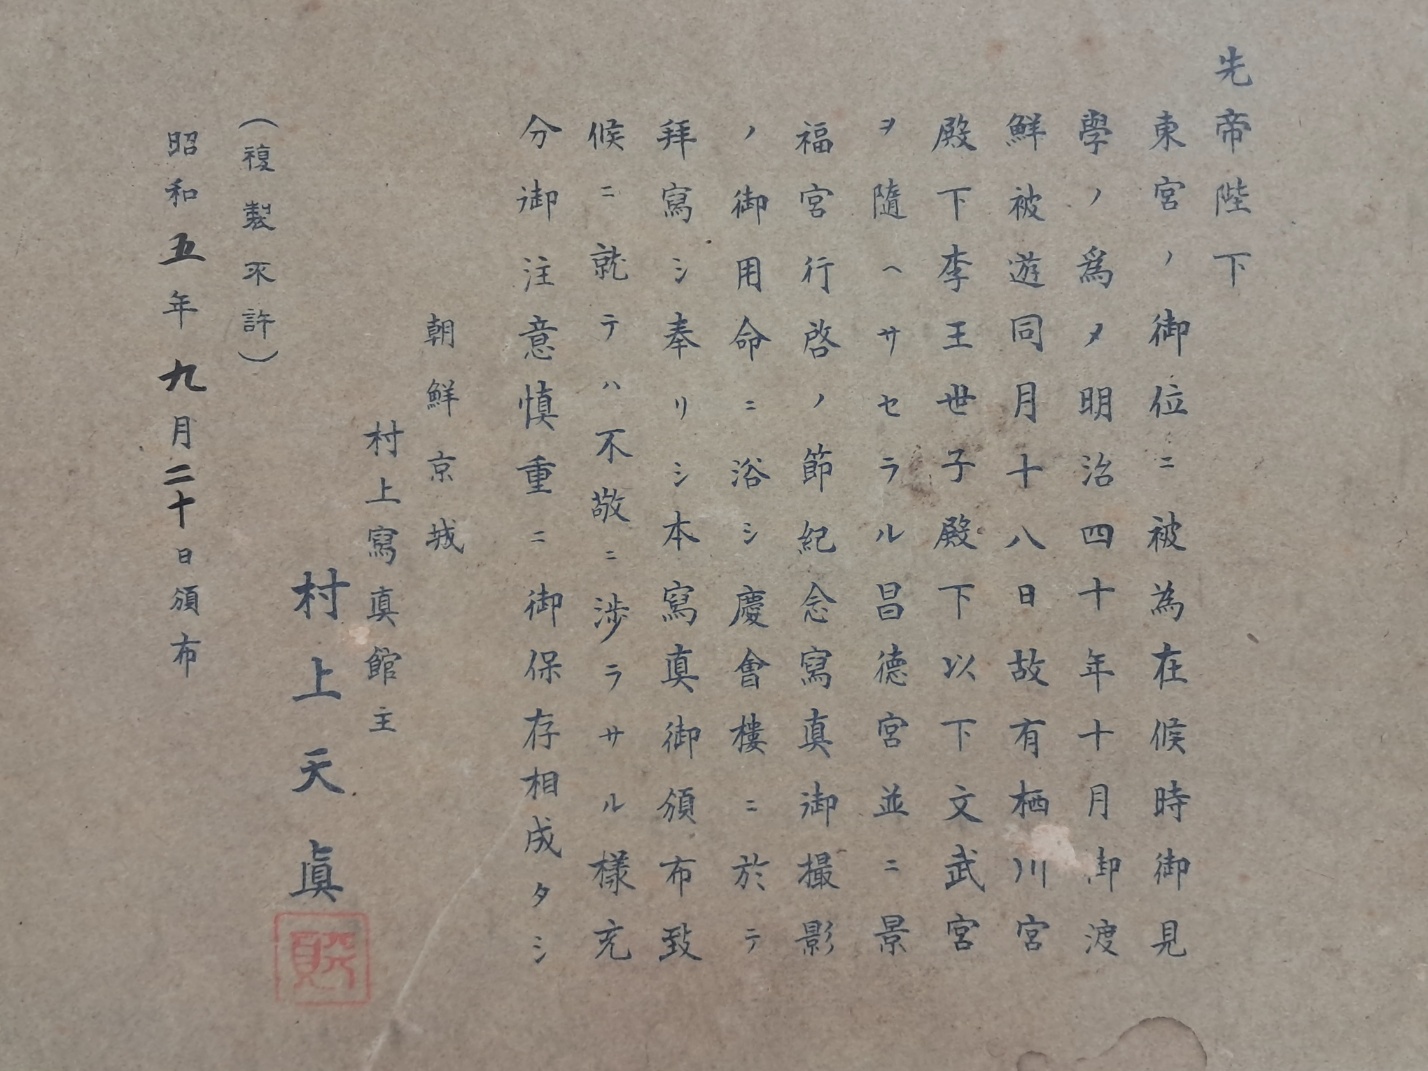 先帝陛下
東宮ノ御位ニ被為在候時御見
學ノ爲メ明治四十年十月御渡
鮮被遊同月十八日故有栖川宮
殿下李王世子殿下以下文武宮
ヲ隨ヘサセラル昌德宮並ニ景
福宮行啓ノ節紀念寫真御撮影
ノ御用命ニ浴シ慶會樓ニ於テ
拜寫シ奉リシ本寫真御頒布致
候ニ就テハ不敬ニ涉ラサル樣充
分御注意慎重ニ御保存相成タシ
朝鮮京城
村上寫真館主
村上天眞
(複製不許)
昭和五年九月二十日頒布